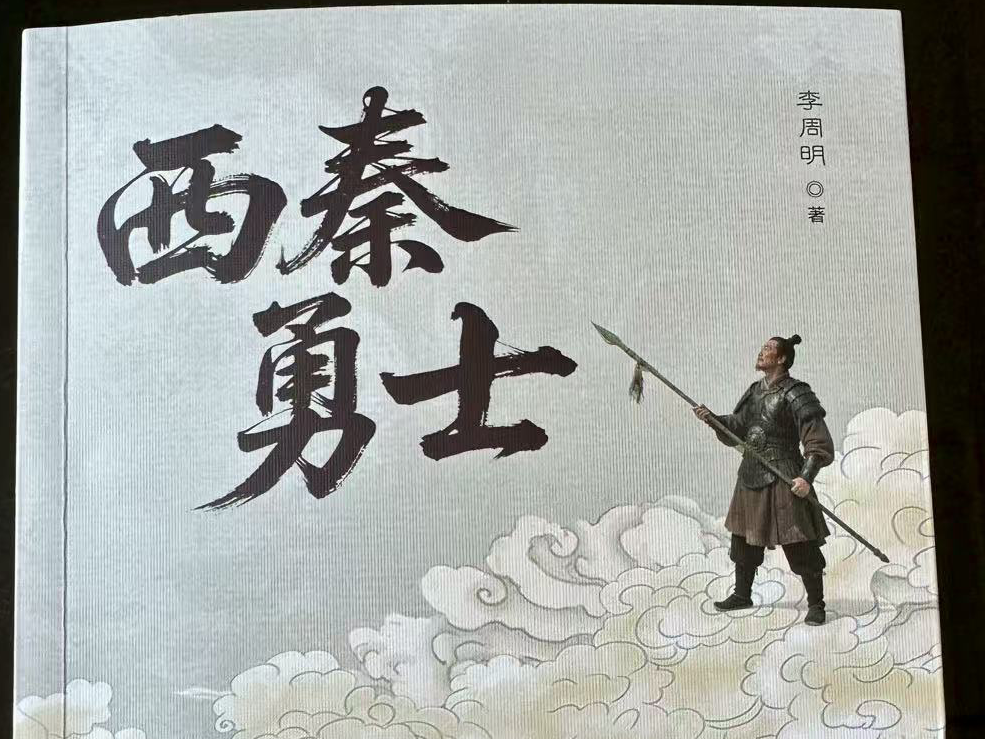 西秦
勇士
李周明◎著